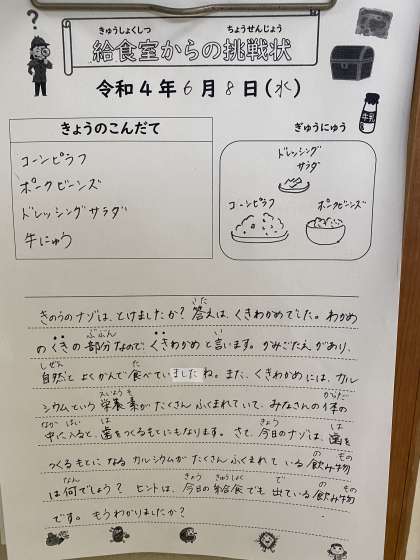 きゅうしょくしつ ちょうせんじょう
給食室からの挑戦状
令和4年6月8日(水)
きょうのこんだて
コーンピラフ
ポークビーンズ
ドレッシングサラダ
牛にゅう
ぎゅうにゅう
牛乳
ドレッシング
サラダ
コーンピラフ ポークビーンズ
こた
きのうのナゾは、とけましたか?答えは、くきわかめでした。わかめ
ぶぶん い
のくきの部分なので、くきわかめと言います。かみごたえがあり、
しぜん た
自然とよくかんで食べていましたね。また、くきわかめには、カル
えいようそ からだ
シウムという栄養素がたくさんふくまれていて、みなさんの体の
なか はい は きょう は
中に入ると、歯をつくるもとにもなります。さて、今日のナゾは、歯を
の もの
つくるもとになるカルシウムがたくさんふくまれている飲み物
なん きょう きゅうしょく で の もの
は何でしょう?ヒントは、今日の給食でも出ている飲み物
です。もうわかりましたか?